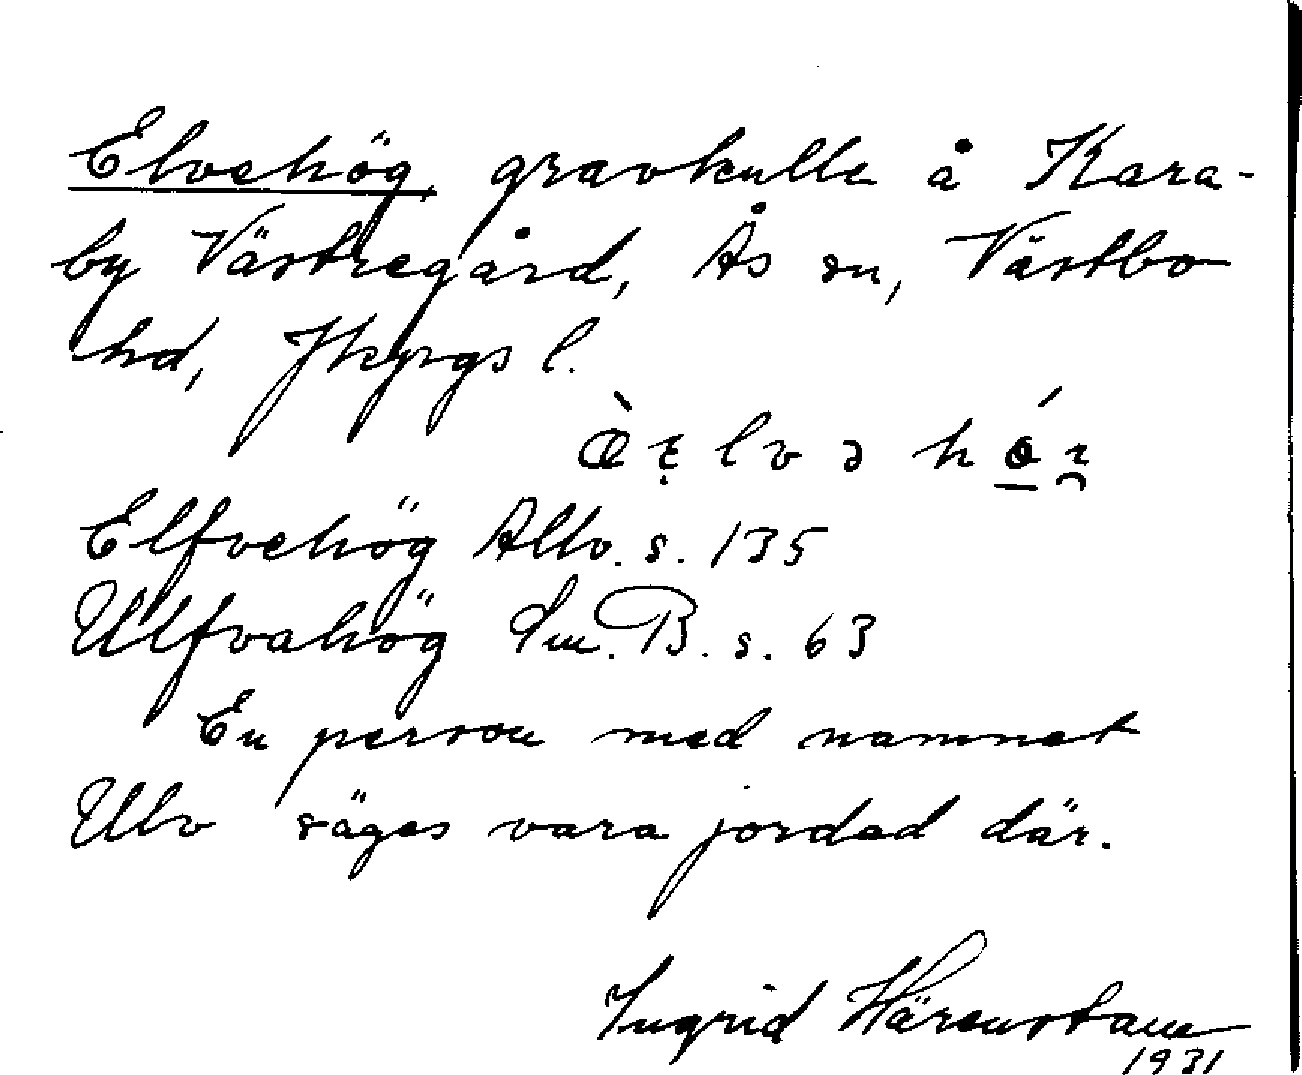 Elvehög, gravkulle å Kara-
by Västregård, Ås sn, Västbo
hd, Jkpgs l.
Elfvehög Allv. s. 135
Ulfvahög Sm. B. s. 63
En person med namnet
Ulv säges vara jordad där.
Ingrid Härenstam
1931